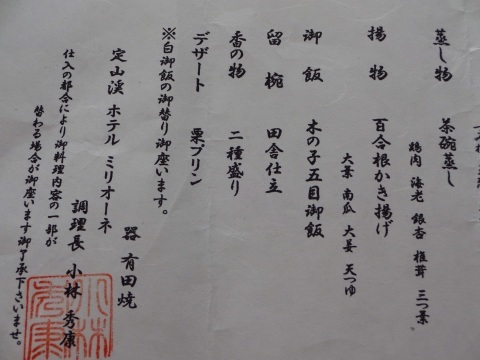 蒸し物　茶碗蒸し
鶏肉　海老　銀杏　椎茸　三つ葉
揚物　百合根かき揚げ
大葉　南瓜　大葉　天つゆ
御飯　木の子五目御飯
留椀　田舎仕立
香の物　二種盛り
デザート　栗プリン
※白御飯の御替り御座います。
器　有田焼
定山渓　ホテル　ミリオーネ
調理長　小林　秀康
仕入の都合により御料理内容の一部が
替わる場合が御座います御了承下さいませ。